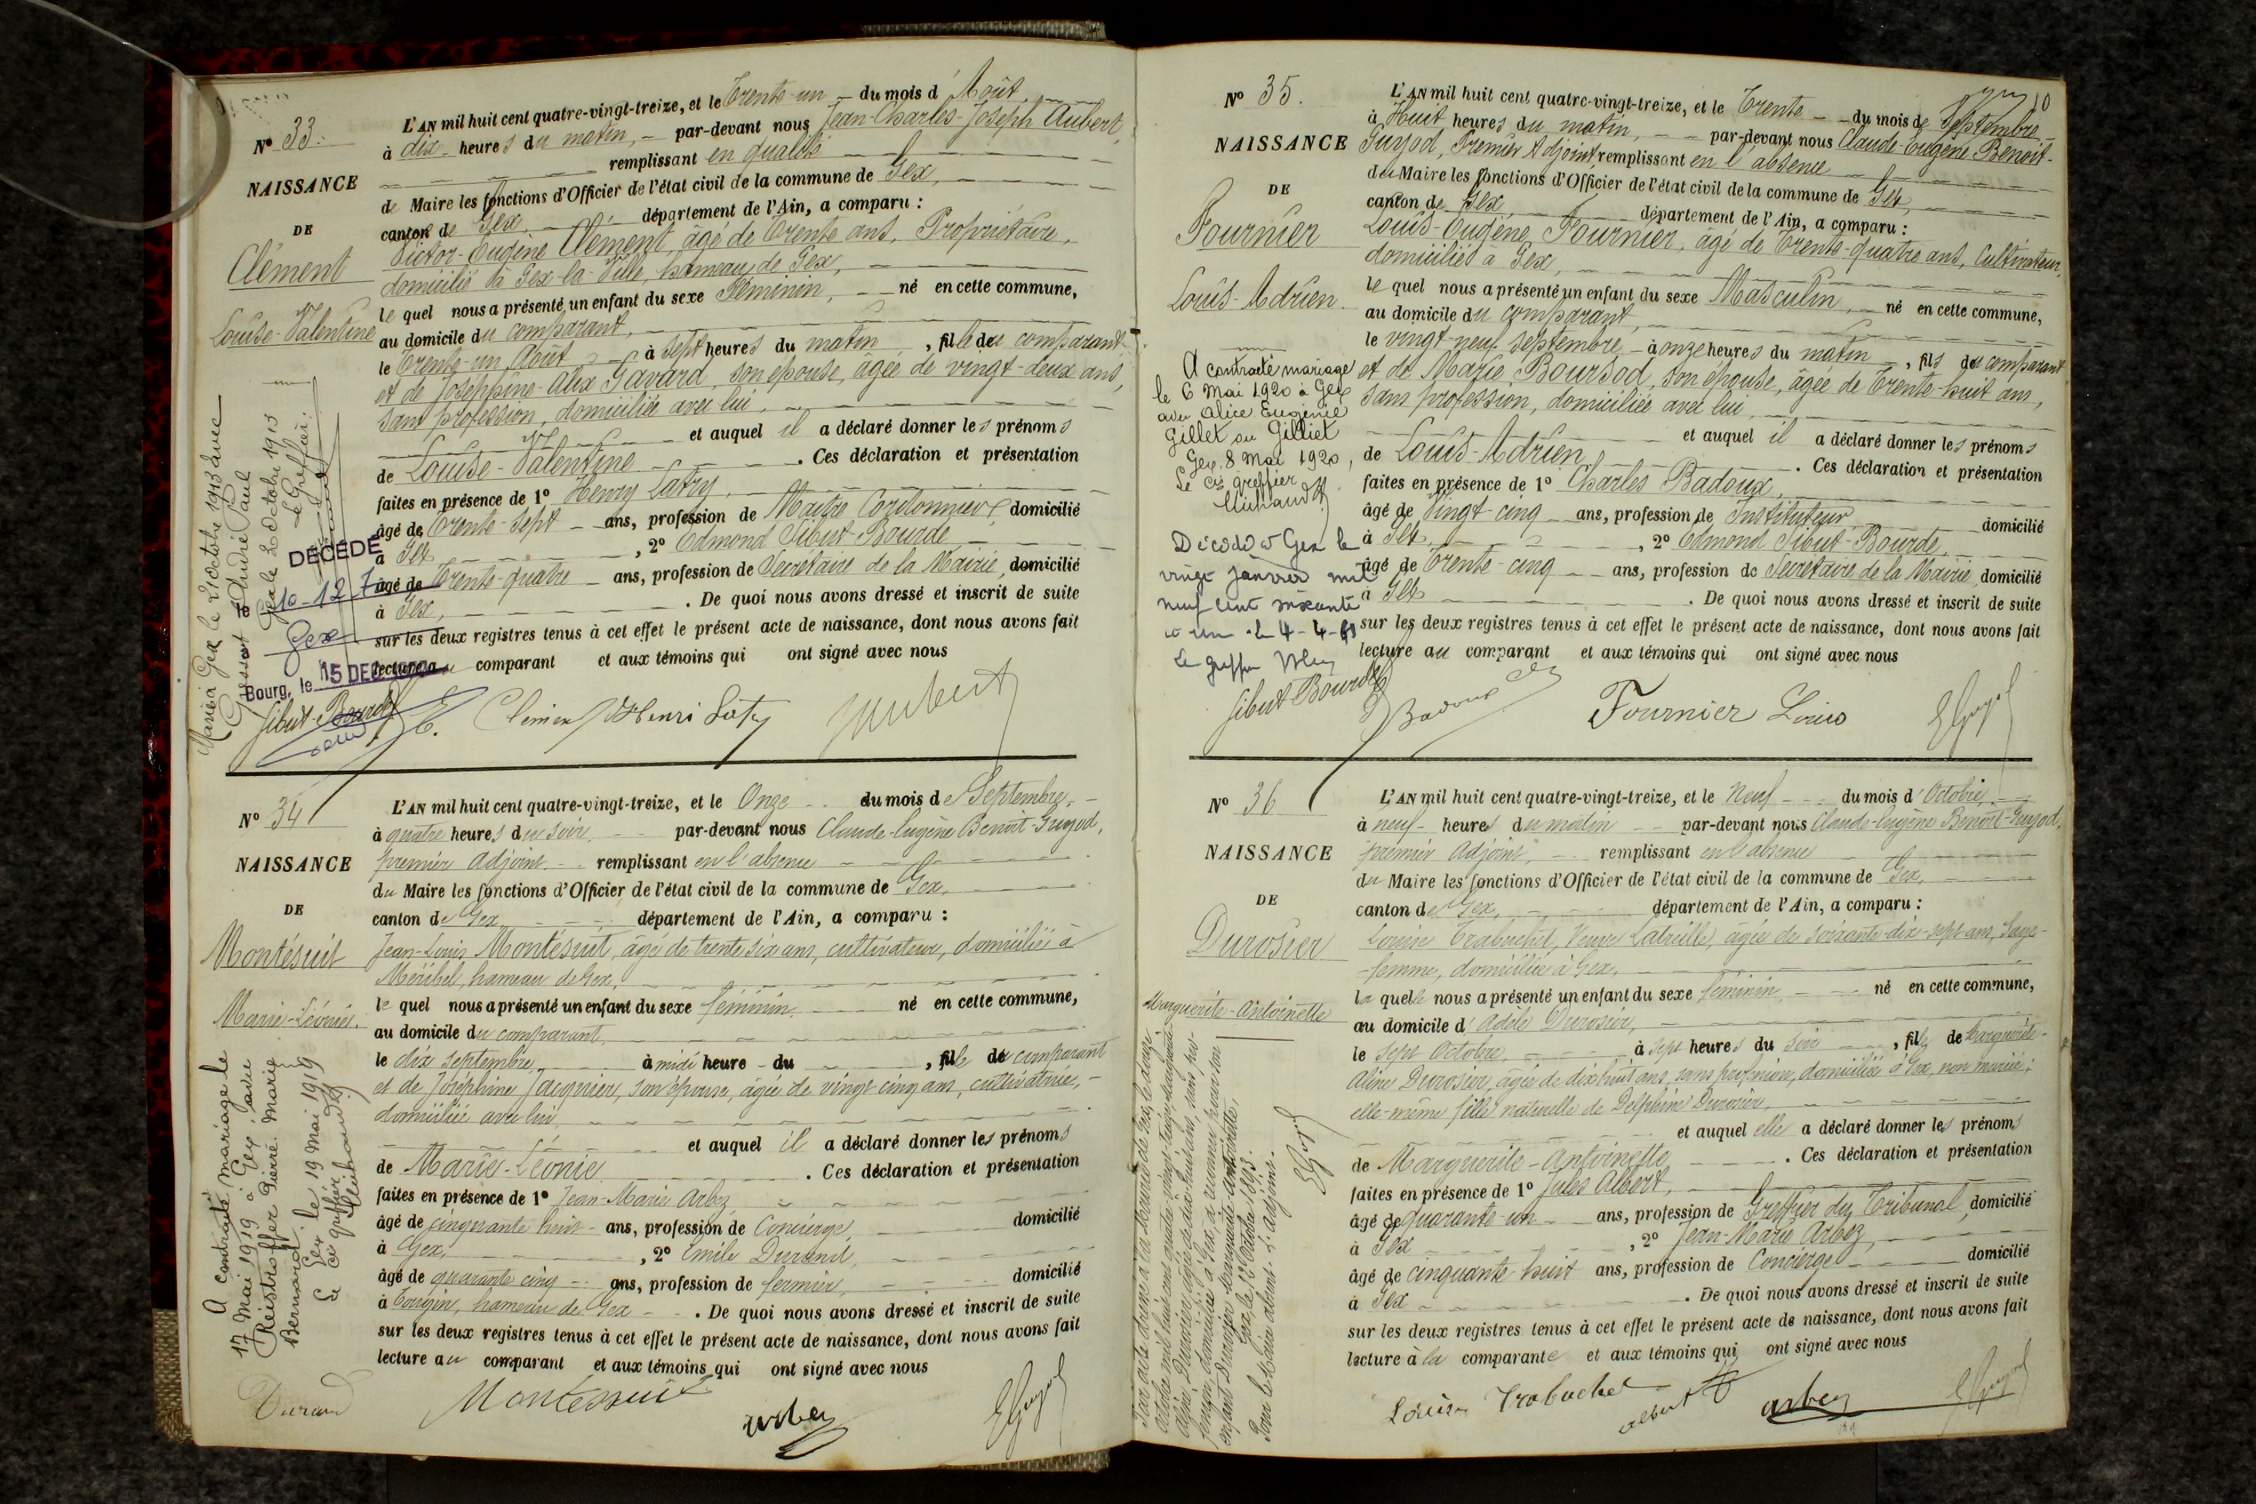 N° 33.
NAISSANCE
DE
Clément
Louise-Valentine
L'AN mil huit cent quatre-vingt-treize, et le Trente-un du mois d'Août
à dix heures du matin, par-devant nous Jean-Charles-Joseph Aubert,
remplissant en qualité
de Maire les fonctions d'Officier de l'état civil de la commune de Gex,
canton de Gex département de l'Ain, a comparu :
Victor-Eugène Clément, âgé de Trente ans, Propriétaire,
domicilié à Gex-la-Ville, hameau de Gex,
le quel nous a présenté un enfant du sexe Féminin, né en cette commune,
au domicile du comparant,
le Trente-un Août à sept heures du matin, fille du comparant
et de Joséphine-Alix Gavard, son épouse, âgée de vingt-deux ans,
sans profession, domiciliée avec lui,
et auquel il a déclaré donner les prénoms
de Louise-Valentine. Ces déclaration et présentation
faites en présence de 1° Henry Latry,
âgé de Trente-sept ans, profession de Maître Cordonnier, domicilié
à Gex, 2° Edmond Sibut-Bourde
âgé de Trente-quatre ans, profession de Secrétaire de la Mairie, domicilié
à Gex, . De quoi nous avons dressé et inscrit de suite
sur les deux registres tenus à cet effet le présent acte de naissance, dont nous avons fait
lecture au comparant et aux témoins qui ont signé avec nous
Marié à Gex le 2 Octobre 1913 avec
André Paul
Gex le 20 Octobre 1913
Le Greffier:
DÉCÉDÉ
Gex
Bourg, le 15 DEC
Sibut-Bourde Clément Henri Latry Aubert
N° 34
NAISSANCE
DE
Montésuit
Marie-Léonie.
L'AN mil huit cent quatre-vingt-treize, et le Onze du mois de Septembre,
à quatre heures du soir par-devant nous Claude-Eugène Benoit-Guyod,
premier Adjoint remplissant en l'absence
du Maire les fonctions d'Officier de l'état civil de la commune de Gex,
canton de Gex, département de l'Ain, a comparu :
Jean-Louis Montésuit, âgé de trente six ans, cultivateur, domicilié à
Méribel, hameau de Gex,
le quel nous a présenté un enfant du sexe féminin né en cette commune,
au domicile du comparant,
le dix septembre à midi heure du , fille du comparant
et de Joséphine Jacquier, son épouse, âgée de vingt cinq ans, cultivatrice,
domiciliée avec lui,
et auquel il a déclaré donner les prénoms
de Marie-Léonie. Ces déclaration et présentation
faites en présence de 1° Jean-Marie Arbez
âgé de cinquante huit ans, profession de Concierge, domicilié
à Gex, , 2° Emile Durand,
âgé de quarante cinq ans, profession de fermier, domicilié
à Tougin, hameau de Gex . De quoi nous avons dressé et inscrit de suite
sur les deux registres tenus à cet effet le présent acte de naissance, dont nous avons fait
lecture au comparant et aux témoins qui ont signé avec nous
A contracté mariage le
17 Mai 1919 à Gex avec
Pierre Marie
Bernard.
Gex le 19 Mai 1919
Le Cis greffier
Durand Montessuit arbez EGuyod
N° 35.
NAISSANCE
DE
Fournier
Louis-Adrien
L'AN mil huit cent quatre-vingt-treize, et le Trente du mois de Septembre
à Huit heures du matin, par-devant nous Claude-Eugène-Benoit-
Guyod, Premier Adjoint remplissant en l'absence
du Maire les fonctions d'Officier de l'état civil de la commune de Gex,
canton de Gex département de l'Ain, a comparu :
Louis-Eugène Fournier, âgé de Trente-quatre ans, Cultivateur,
domicilié à Gex,
le quel nous a présenté un enfant du sexe Masculin, né en cette commune,
au domicile du comparant,
le vingt-neuf septembre à onze heures du matin, fils du comparant
et de Marie Boursod, son épouse, âgée de Trente-huit ans,
sans profession, domiciliée avec lui,
et auquel il a déclaré donner les prénoms
de Louis-Adrien. Ces déclaration et présentation
faites en présence de 1° Charles Badoux,
âgé de Vingt-cinq ans, profession de Instituteur domicilié
à Gex, , 2° Edmond Sibut-Bourde,
âgé de Trente-cinq ans, profession de Secrétaire de la Mairie, domicilié
à Gex . De quoi nous avons dressé et inscrit de suite
sur les deux registres tenus à cet effet le présent acte de naissance, dont nous avons fait
lecture au comparant et aux témoins qui ont signé avec nous
A contracté mariage
le 6 Mai 1920 à Gex
avec Alice Eugénie
Gillet ou Gilliet
Gex, 8 Mai 1920,
Le Cis greffier
Décédé à Gex le
vingt janvier mil
neuf cent soixante
et un
Le greffier
Sibut-Bourde Badoux Fournier Louis EGuyod
N° 36
NAISSANCE
DE
Durosier
Marguerite-Antoinette
L'AN mil huit cent quatre-vingt-treize, et le Neuf du mois d'Octobre,
à neuf heures du matin par-devant nous Claude-Eugène Benoit-Guyod,
premier Adjoint, remplissant en l'absence
du Maire les fonctions d'Officier de l'état civil de la commune de Gex,
canton de Gex, département de l'Ain, a comparu :
Louise Trabuchet, Veuve Latreille, âgée de soixante-dix-sept ans, Sage-
femme, domiciliée à Gex,
la quelle nous a présenté un enfant du sexe féminin né en cette commune,
au domicile d'Adèle Durosier,
le sept Octobre, à sept heures du soir, fille de Marguerite-
Aline Durosier, âgée de dix huit ans, sans profession, domiciliée à Gex, non mariée;
elle-même fille naturelle de Delphine Durosier,
et auquel elle a déclaré donner les prénoms
de Marguerite-Antoinette. Ces déclaration et présentation
faites en présence de 1° Jules Albert,
âgé de quarante-un ans, profession de Greffier du Tribunal, domicilié
à Gex , 2° Jean-Marie Arbez,
âgé de cinquante-huit ans, profession de Concierge domicilié
à Gex . De quoi nous avons dressé et inscrit de suite
sur les deux registres tenus à cet effet le présent acte de naissance, dont nous avons fait
lecture à la comparante et aux témoins qui ont signé avec nous
Octobre mil huit cent quatre-vingt-treize, Marguerite-
Aline Durosier, âgée de dix-huit ans, sans pro-
fession, domiciliée à Gex, a reconnu pour son
enfant Durosier Marguerite-Antoinette,
Gex, le 12 Octobre 1893.
Pour le Maire absent, l'Adjoint.
EGuyod
Louise Trabuchet albert arbez EGuyod